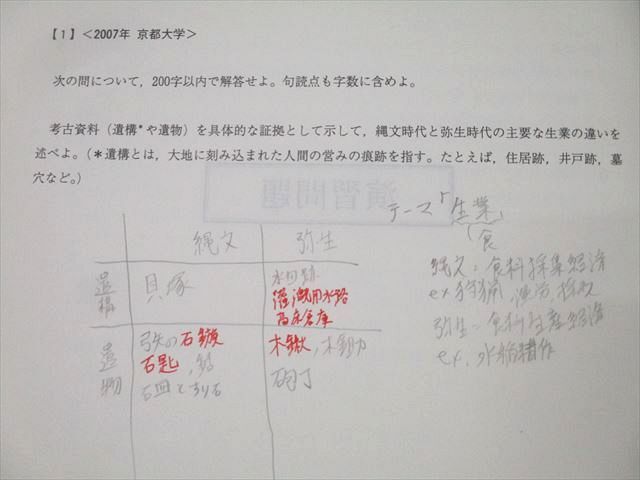 【1】＜2007年 京都大学＞
次の問について，200字以内で解答せよ。句読点も字数に含めよ。
考古資料（遺構*や遺物）を具体的な証拠として示して，縄文時代と弥生時代の主要な生業の違いを
述べよ。（＊遺構とは，大地に刻み込まれた人間の営みの痕跡を指す。たとえば，住居跡，井戸跡，墓
穴など。）
演習問題
テーマ「生業」
食
縄文 弥生
遺構 貝塚 水田跡
灌漑用水路
高床倉庫
遺物 弓矢の石鏃 木鍬，木鋤
石匙，銛 石包丁
石皿とすり石
縄文：食料採集経済
ex 狩猟 漁労 採取
弥生＝食料生産経済
ex. 水稲耕作